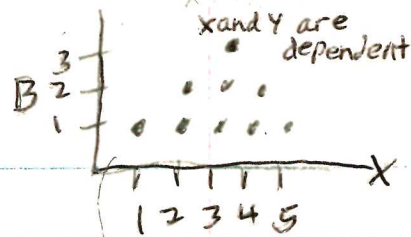 X and Y are
dependent
3
B 2
1
X
1 2 3 4 5